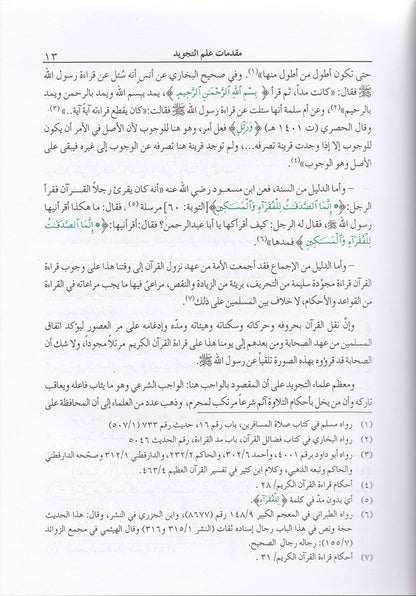 مقدمات علم التجويد ١٣
حتى تكون أطول من أطول منها»(١). وفي صحيح البخاري عن أنس أنه سُئل عن قراءة رسول الله
ﷺ فقال: «كانت مداً، ثم قرأ ﴿بِسْمِ ٱللَّهِ ٱلرَّحْمَٰنِ ٱلرَّحِيمِ﴾، يمد ببسم الله ويمد بالرحمن ويمد
بالرحيم»(٢)، وعن أم سلمة أنها سئلت عن قراءة رسول الله ﷺ فقالت: «كان يقطع قراءته آيةً آية..»(٣).
وقال الحصري (ت ١٤٠١ هـ) ﴿وَرَتِّلِ﴾ فعل أمر، وهو هنا للوجوب لأن الأصل في الأمر أن يكون
للوجوب إلا إذا وجدت قرينة تصرفه...، ولم توجد قرينة هنا تصرفه عن الوجوب إلى غيره فيبقى على
الأصل وهو الوجوب»(٤).
– وأما الدليل من السنة، فعن ابن مسعود رضي الله عنه «أنه كان يقرئ رجلاً القرآن فقرأ
الرجل: ﴿إِنَّمَا ٱلصَّدَقَٰتُ لِلْفُقَرَآءِ وَٱلْمَسَٰكِينِ﴾ [التوبة: ٦٠] مرسلة(٥). فقال: ما هكذا أقرأنيها
رسول الله ﷺ، فقال له الرجل: كيف أقرأكها يا أبا عبدالرحمن؟ فقال: أقرأنيها: ﴿إِنَّمَا ٱلصَّدَقَٰتُ
لِلْفُقَرَآءِ وَٱلْمَسَٰكِينِ﴾ فمدها»(٦).
– وأما الدليل من الإجماع فقد أجمعت الأمة من عهد نزول القرآن إلى وقتنا هذا على وجوب قراءة
القرآن قراءة مجوّدة سليمة من التحريف، بريئة من الزيادة والنقص، مراعىً فيها ما يجب مراعاته في القراءة
من القواعد والأحكام، لا خلاف بين المسلمين على ذلك(٧).
وإنّ نقل القرآن بحروفه وحركاته وسكناته وهيئاته ومدّه وإدغامه على مر العصور ليؤكد اتفاق
المسلمين من عهد الصحابة ومن بعدهم إلى يومنا هذا على قراءة القرآن الكريم مرتلاً مجوداً، ولا شك أن
الصحابة قد قرؤوه بهذه الصورة تلقياً عن رسول الله ﷺ.
ومعظم علماء التجويد على أن المقصود بالواجب هنا: الواجب الشرعي وهو ما يثاب فاعله ويعاقب
تاركه وأن من يخل بأحكام التلاوة آثم شرعاً مرتكب لمحرم، وذهب عدد من العلماء إلى أن المحافظة على
(١) رواه مسلم في كتاب صلاة المسافرين، باب رقم ١٦، حديث رقم ٧٣٣ (٥٠٧/١)
(٢) رواه البخاري في كتاب فضائل القرآن، باب مد القراءة، رقم الحديث ٥٠٤٦
(٣) رواه أبو داود برقم ٤٠٠١، وأحمد ٣٠٢/٦، والحاكم ٢٣٢/٢، والدارقطني ٣١٢/١ وصححه الدارقطني
والحاكم وتبعه الذهبي، وكلام ابن كثير في تفسير القرآن العظيم ٤٦٣/٤.
(٤) أحكام قراءة القرآن الكريم/ ٢٨.
(٥) أي بدون مدّ في كلمة ﴿لِلْفُقَرَآءِ﴾.
(٦) رواه الطبراني في المعجم الكبير ١٤٨/٩ (٨٦٧٧)، وابن الجزري في النشر، وقال: هذا الحديث
حجة ونص في هذا الباب رجال إسناده ثقات (النشر ٣١٥/١ و٣١٦) وقال الهيثمي في مجمع الزوائد
(١٥٥/٧): رجاله رجال الصحيح.
(٧) أحكام قراءة القرآن الكريم/ ٣١.